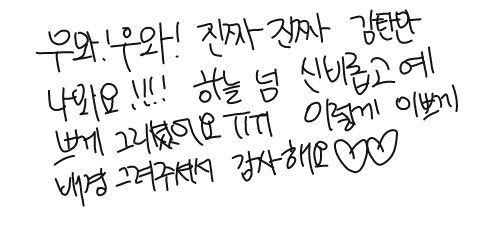 우와!우와! 진짜 진짜 감탄만
나와요!!!! 하늘 넘 신비롭고 예
쁘게 그리셨어요 ㅠㅠ 이렇게 이쁘게
배경 그려주셔서 감사해요♡♡